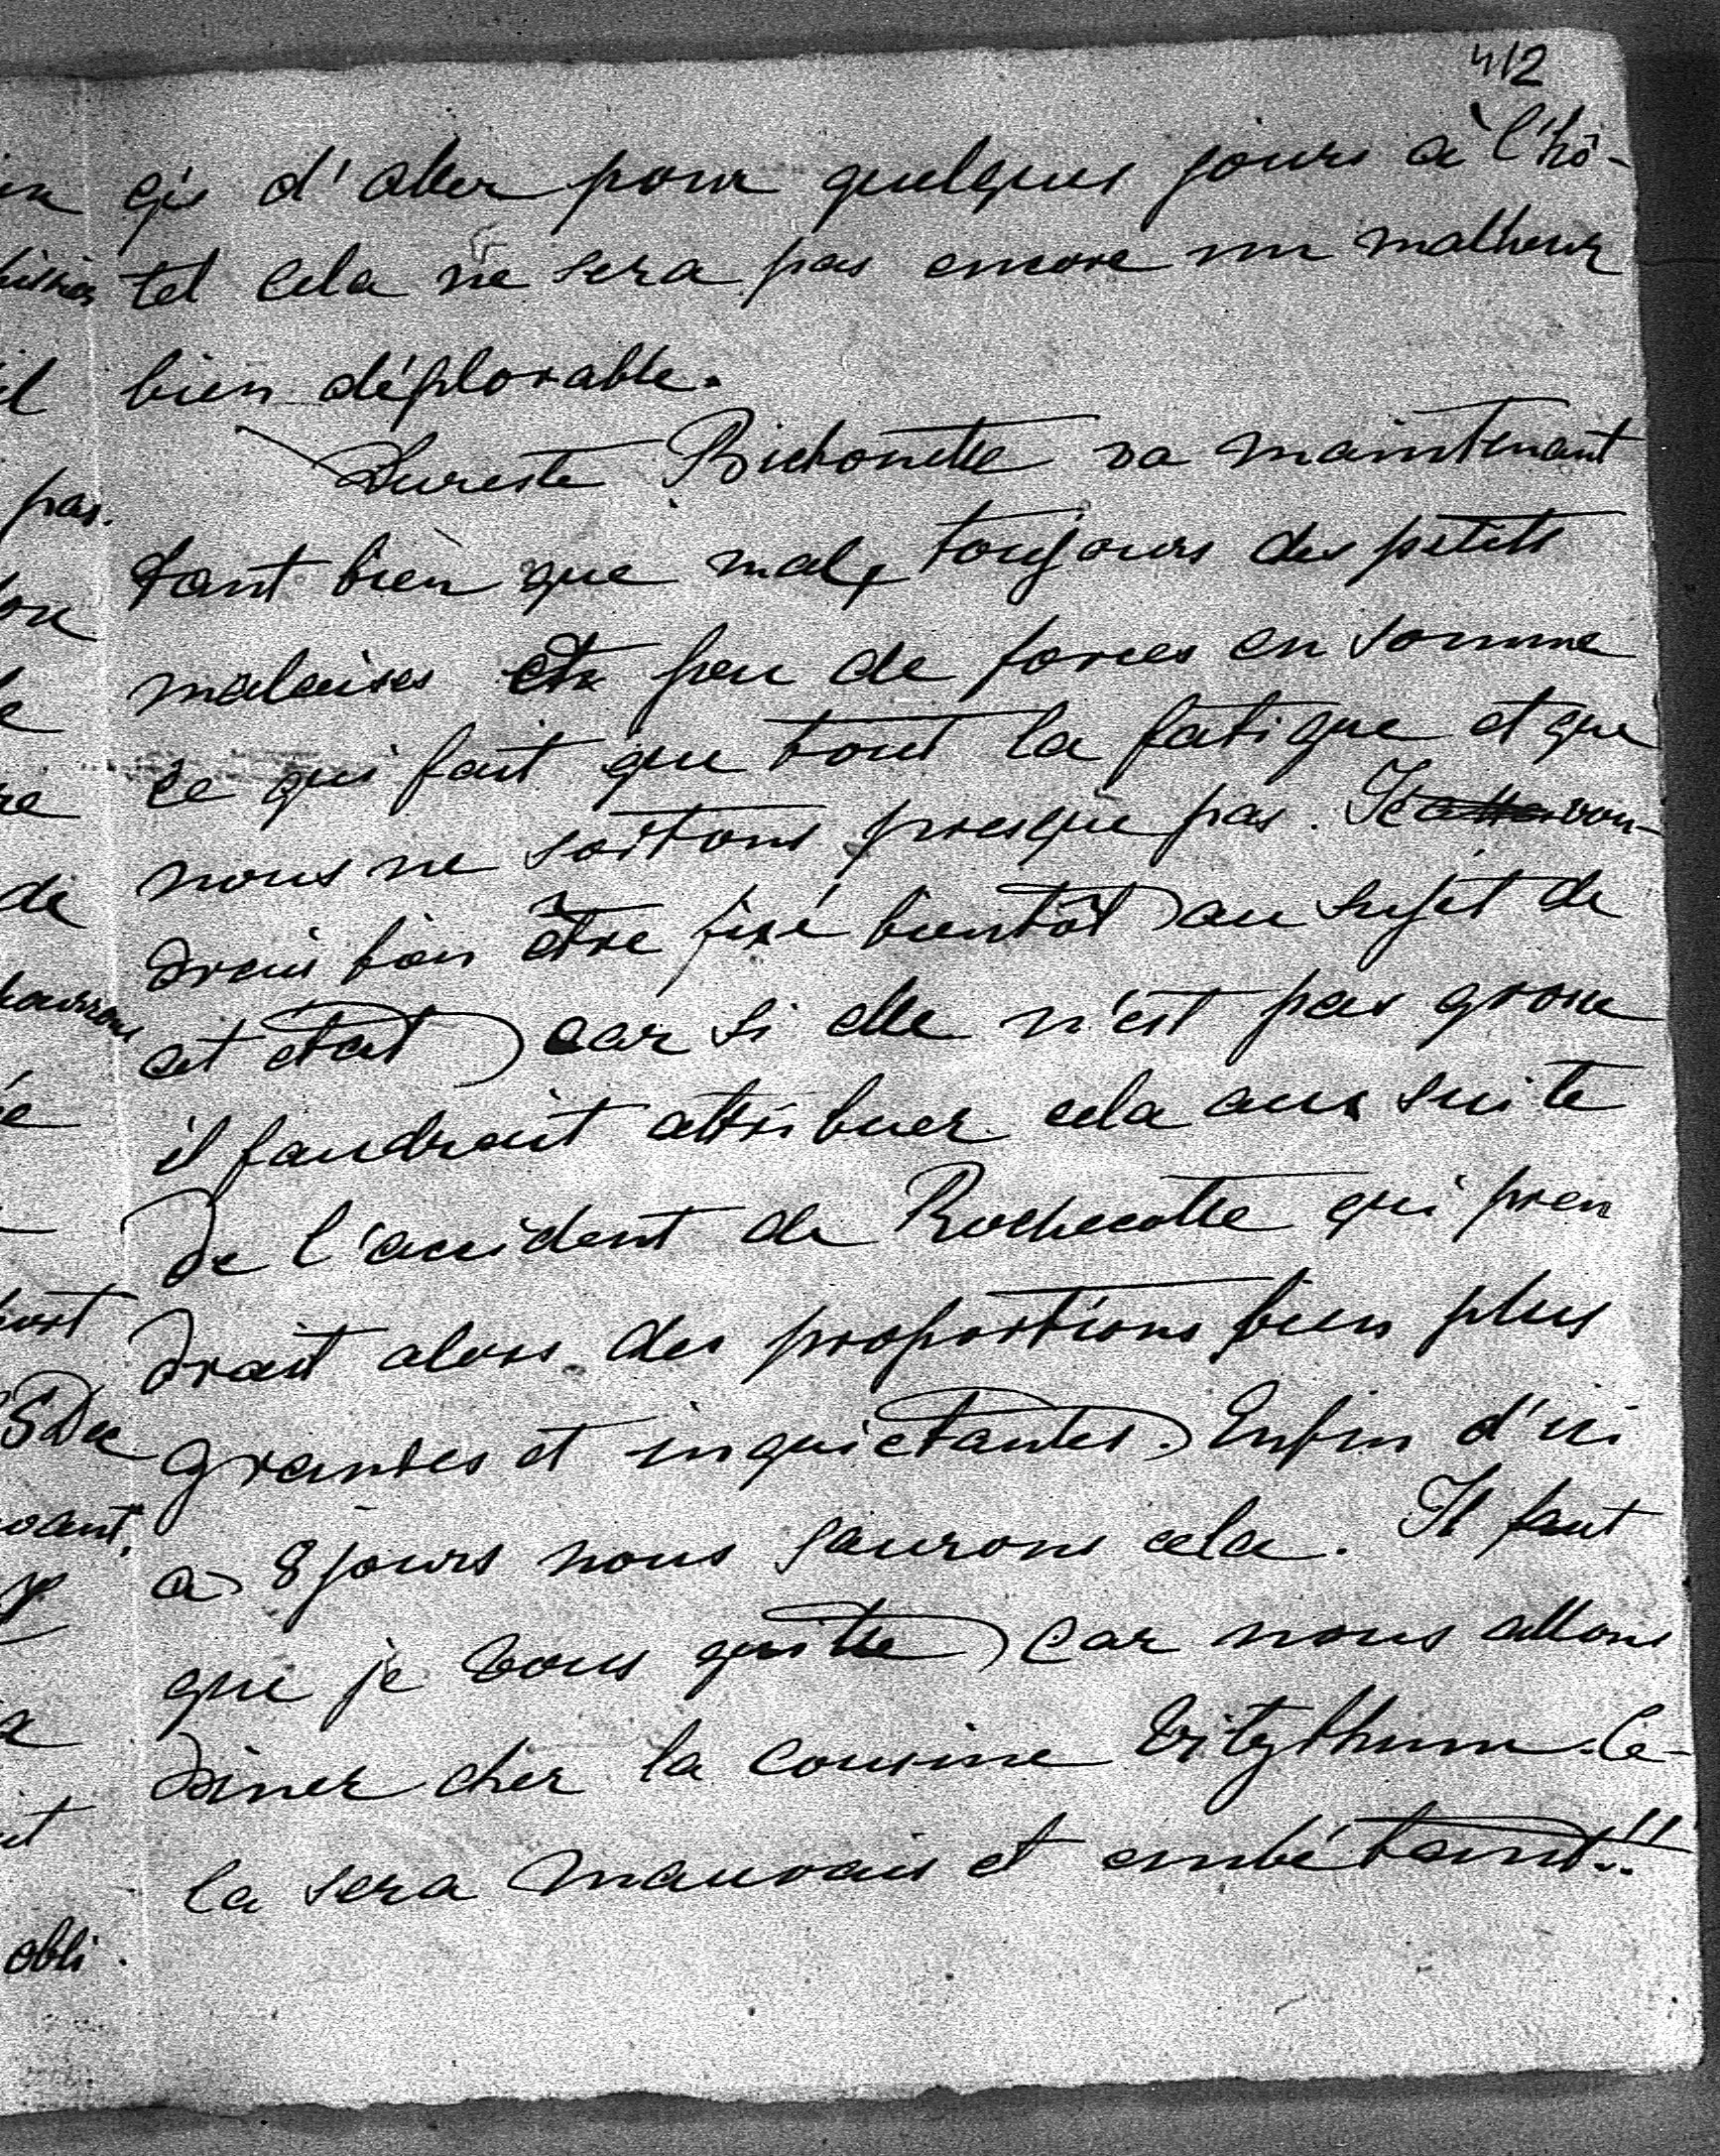 412
gés d'aller pour quelques jours à l'hô-
tel cela ne sera pas encore un malheur
bien déplorable.
Dureste Bichonette va maintenant
tant bien que mal, toujours des petits
malaises et peu de forces en somme
ce qui fait que tout la fatigue et que
nous ne sortons presque pas. Je vou-
drais bien être fixé bientôt au sujet de
cet état car si elle n'est pas grosse
il faudrait attribuer cela aux suite
de l'accident de Rochecotte qui pren
drait alors des proportions bien plus
grandes et inquiétantes. Enfin d'ici
à 8 jours nous saurons cela. Il faut
que je vous quitte car nous allons
diner cher la cousine Vitzthum. Ce-
la sera mauvais et embêtant!!
pas.
obli.